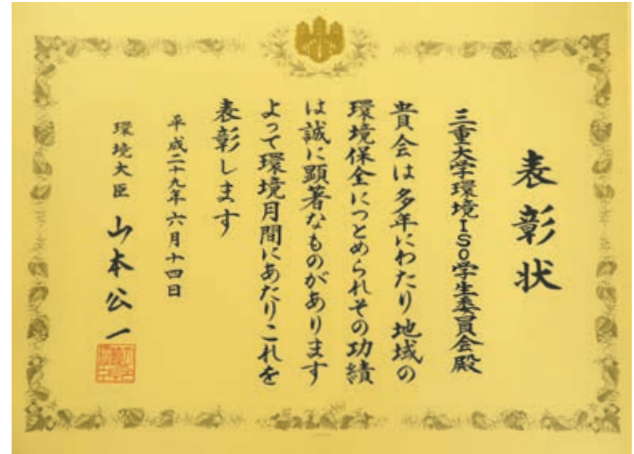 表彰状
三重大学環境ISO学生委員会殿
貴会は多年にわたり地域の
環境保全につとめられその功績
は誠に顕著なものがあります
よって環境月間にあたりこれを
表彰します
平成二十九年六月十四日
環境大臣 山本公一